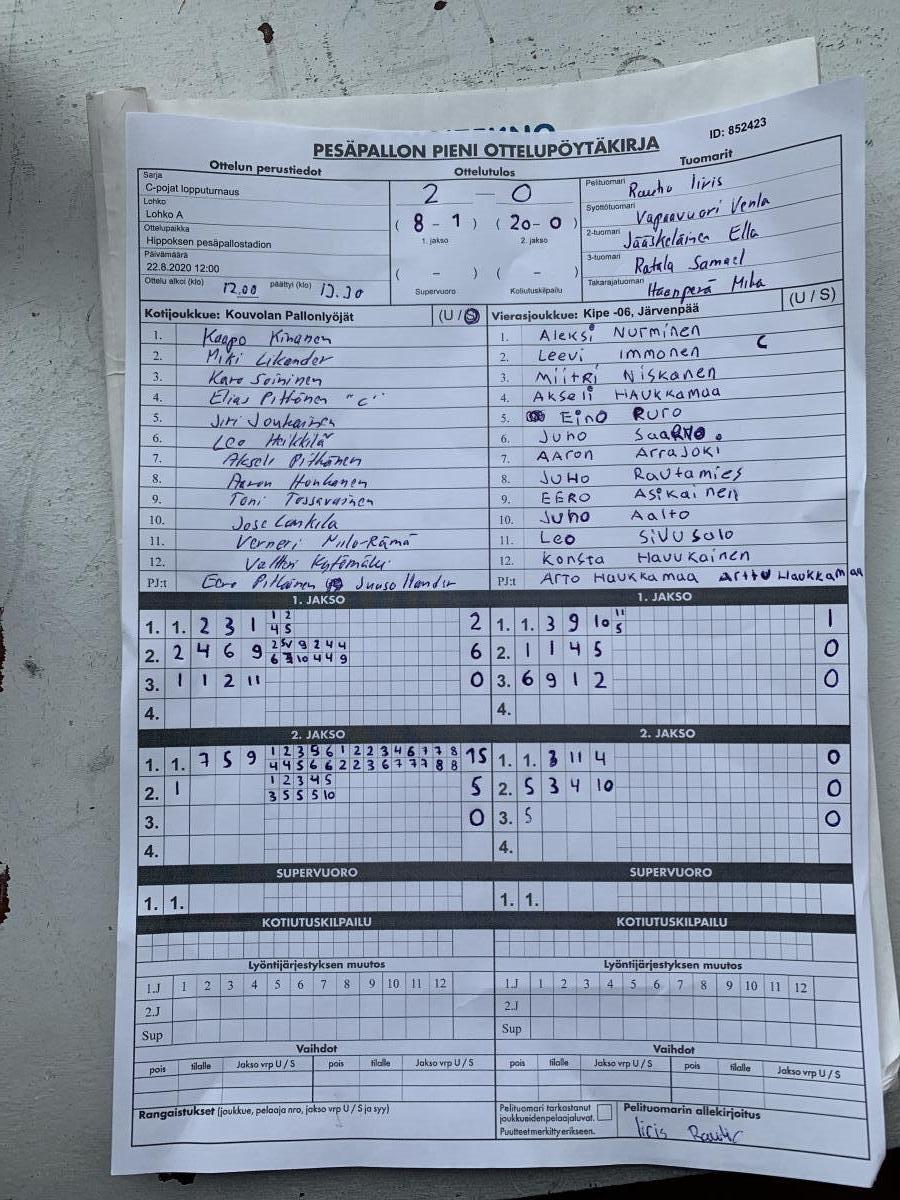 PESÄPALLON PIENI OTTELUPÖYTÄKIRJA
ID: 852423
Ottelun perustiedot
Ottelutulos
Tuomarit
Sarja
C-pojat lopputurnaus
Lohko
Lohko A
Ottelupaikka
Hippoksen pesäpallostadion
Päivämäärä
22.8.2020 12:00
Ottelu alkoi (klo) 12.00 päättyi (klo) 13.30
2 — 0
( 8 - 1 ) ( 20- 0 )
1. jakso 2. jakso
( - ) ( - )
Supervuoro Kotiutuskilpailu
Pelituomari Iiris
Syöttötuomari Vapaavuori Venla
2-tuomari Jääskeläinen Ella
3-tuomari Ratala Samael
Takarajatuomari Haanperä Mika
Kotijoukkue: Kouvolan Pallonlyöjät (U / S)
1. Kaapo Kinanen
2. Miki Likander
3. Karo Soininen
4. Elias Pitkänen "C"
5. Jiri Joukainen
6. Leo Heikkilä
7. Akseli Pitkänen
8. Aaron Honkanen
9. Toni Tossavainen
10. Jose Lankila
11. Verneri Miilo-Rämä
12. Valtteri Kytömäki
PJ:t Eero Pitkänen Juuso
Vierasjoukkue: Kipe -06, Järvenpää (U / S)
1. Aleksi Nurminen
2. Leevi Immonen C
3. Miitri Niskanen
4. Akseli Haukkamaa
5. Eino Ruro
6. Juho Saarvo.
7. Aaron Arrajoki
8. Juho Rautamies
9. Eero Asikainen
10. Juho Aalto
11. Leo Sivusalo
12. Konsta Havukainen
PJ:t Arto Haukkamaa Arttu Haukkamaa
1. JAKSO
1. 1. 2 3 1 1 2 2
4 5
2. 2 4 6 9 2 5V 9 2 4 4 6
6 3 10 4 4 9
3. 1 1 2 11 0
4.
1. JAKSO
1. 1. 3 9 10 11 1
5
2. 1 1 4 5 0
3. 6 9 1 2 0
4.
2. JAKSO
1. 1. 7 5 9 1 2 3 5 6 1 2 2 3 4 6 7 7 8 15
4 4 5 6 6 2 2 3 6 7 7 7 8 8
2. 1 1 2 3 4 5 5
3 5 5 5 10
3. 0
4.
2. JAKSO
1. 1. 3 11 4 0
2. 5 3 4 10 0
3. 5 0
4.
SUPERVUORO
1. 1.
SUPERVUORO
1. 1.
KOTIUTUSKILPAILU
KOTIUTUSKILPAILU
Lyöntijärjestyksen muutos
1.J 1 2 3 4 5 6 7 8 9 10 11 12
2.J
Sup
Lyöntijärjestyksen muutos
1.J 1 2 3 4 5 6 7 8 9 10 11 12
2.J
Sup
Vaihdot
pois tilalle Jakso vrp U / S pois tilalle Jakso vrp U / S
Vaihdot
pois tilalle Jakso vrp U / S pois tilalle Jakso vrp U / S
Rangaistukset (joukkue, pelaaja nro, jakso vrp U / S ja syy)
Pelituomari tarkastanut
joukkueidenpelaajaluvat.
Puutteet merkitty erikseen.
Pelituomarin allekirjoitus
Iiris